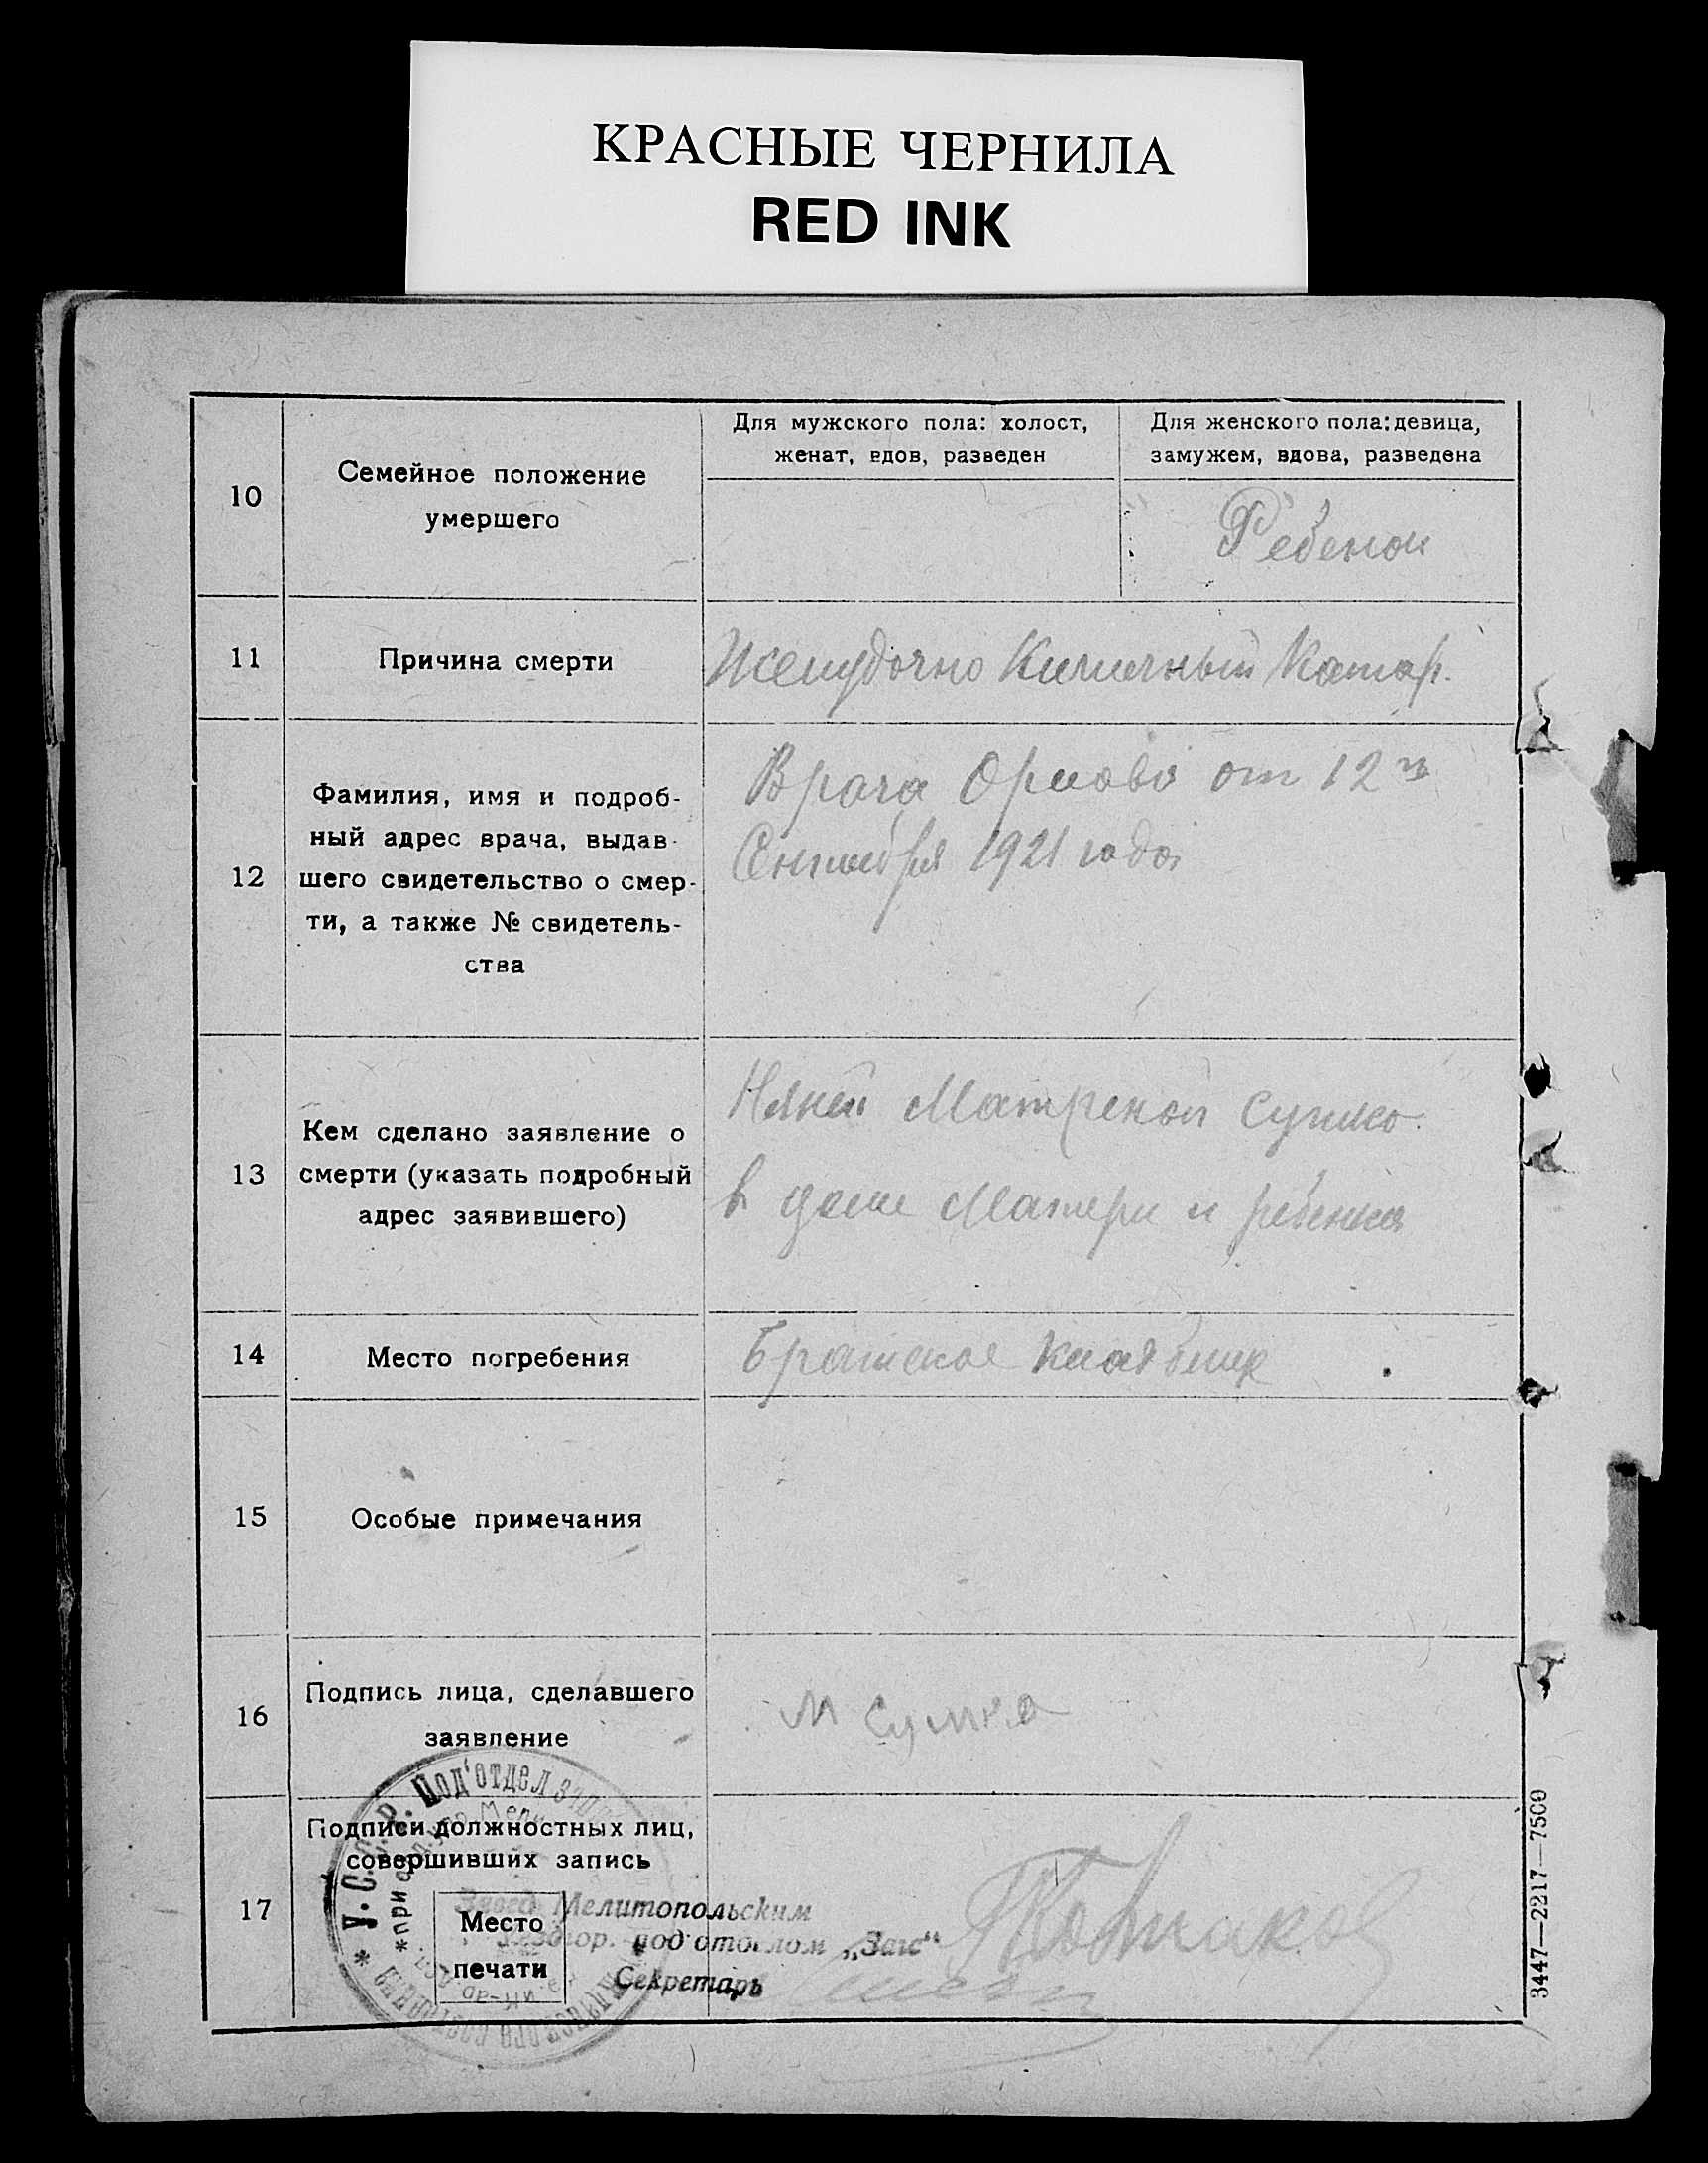 КРАСНЫЕ ЧЕРНИЛА
RED INK
10
Семейное положение
умершего
Для мужского пола: холост,
женат, вдов, разведен
Для женского пола: девица,
замужем, вдова, разведена
Ребенок
11
Причина смерти
Желудочно Кишечный Катар.
12
Фамилия, имя и подроб-
ный адрес врача, выдав-
шего свидетельство о смер-
ти, а также № свидетель-
ства
Врача Орлова от 12го
Сентября 1921 года
13
Кем сделано заявление о
смерти (указать подробный
адрес заявившего)
Няней Матреной Сушко
в доме Матери и ребенка
14
Место погребения
Братское Кладбище
15
Особые примечания
16
Подпись лица, сделавшего
заявление
М
17
Подписи должностных лиц,
совершивших запись
Место
печати
У.С.С.Р. Под'отдел
Завед. Мелитопольским
под'отделом „Загс"
Секретарь
3447—2217—7500